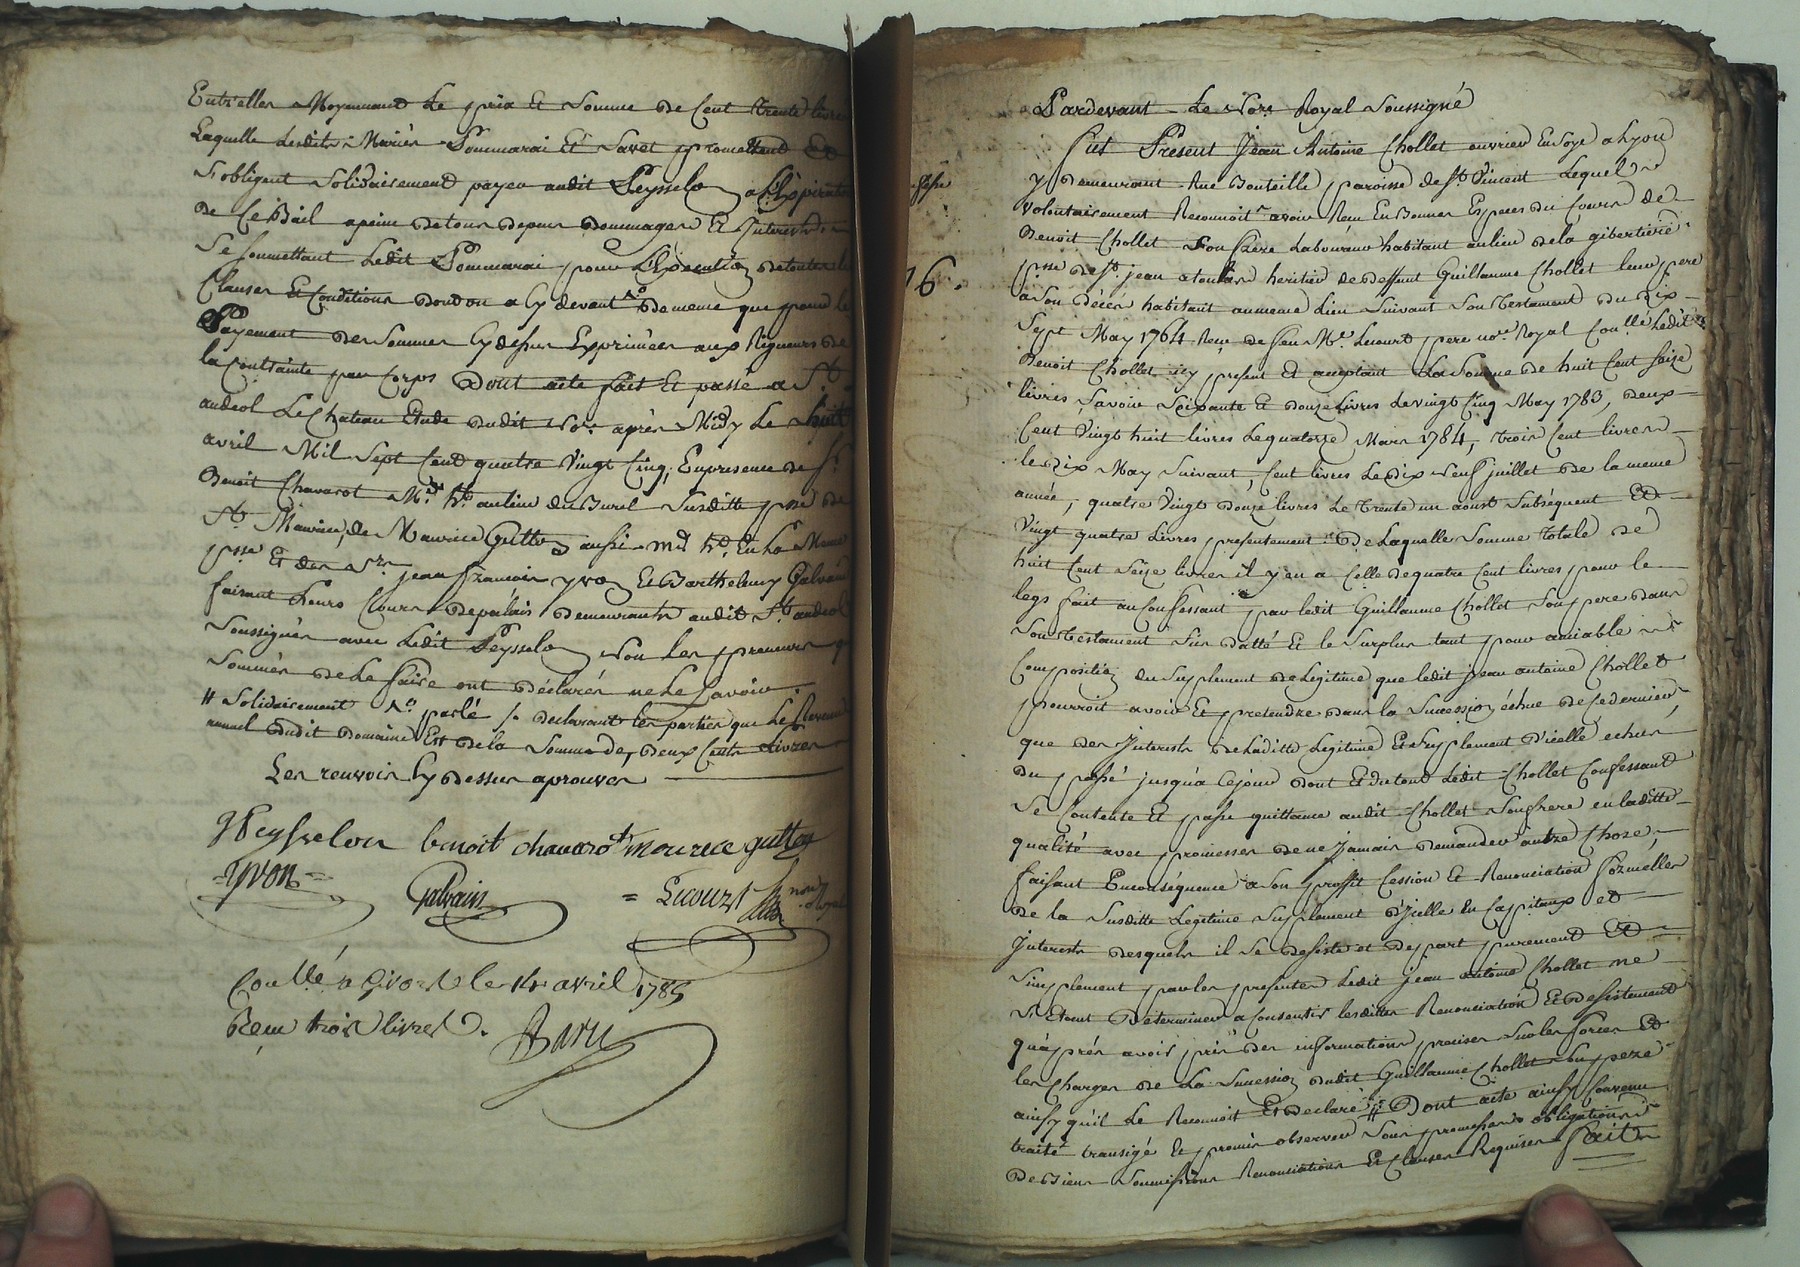 Entr'elles Moyennant Le prix Et Somme de Cent trente livres
Laquelle Lesdits Mariés Pommarai Et Savet promettent Et
S'obligent Solidairement payer audit Peysselon a L'Expiration
de Ce Bail apeine de tous depens dommages Et Interests
Se soummettant Ledit Pommarai pour L'Execution de toutes les
Clauses Et Conditions dont on a Cy devant de meme que pour le
Payement des Sommes Cy dessus Exprimées aux Rigueurs de
la Contrainte par Corps Dont acte fait Et passé a St.
andeol Le Chateau Etude dudit Nore. après Midy Le huit
avril Mil Sept Cent quatre Vingt Cinq, En presence de Sr.
Benoit Chavarot Md. ht. au lieu du Buriel Susditte psse de
St. Maurice, de Maurice Gutton aussi md. ht. En La Meme
psse Et des Srs. jean françois yvon Et Barthelemy Galvain
faisant Leurs Cours de palais demeurants audit St. andeol
Soussignés avec Ledit Peysselon Non les preneurs
Sommés de Le faire ont déclarés ne Le Savoir.
# Solidairement parlé /. declarant les parties que Le Revenu
annuel dudit Domaine Est de la Somme de, deux Cents Livres
Les renvois Cy dessus aprouvés
Peysselon benoit chavarot mourice gutton
=yvon= Galvain = Lecourt
nore. Royal
Conllé a Givors le 14 avril 1785
Reçu trois livres.
Pardevant Le Nore. Royal Soussigné
fut Present Jean Antoine Chollet ouvrier En Soye a Lyon
y demeurant Rue Bouteille paroisse de St. Vincent Lequel
volontairement Reconnoit avoir Reçu En Bonnes Especes du Cours de
Benoit Chollet Son frere Laboureur habitant au lieu de la gibertiere
psse de St. jean a toulas heritier de deffunt Guillaume Chollet leur pere
16.
a Son décès habitant au meme Lieu Suivant Son testament du dix
Sept May 1764 Reçu de feu Me. Lecourt pere nore. Royal Conllé Ledit
Benoit Chollet icy present Et aceptant La Somme de huit Cent Seize
livres, Savoir Soixante Et Douze Livres Le vingt Cinq May 1783, deux
Cent Vingt huit livres Le quatorze Mars 1784, trois Cent livres
le dix May Suivant, Cent livres Le dix Neuf juillet de la meme
année, quatre Vingt Douze livres Le trente un aoust Subséquent Et
Vingt quatre Livres presentement: De Laquelle Somme totale de
huit Cent Seize livres il y en a Celle de quatre Cent livres pour le
legs fait au Confessant par ledit Guillaume Chollet Son pere dans
Son testament Sus datté Et le Surplus tant pour amiable
Composition du Suplement de Legitime que ledit jean antoine Chollet
pourroit avoir Et pretendre dans la Sucession échue de Ce dernier
que des Interests de Laditte Legitime Et Suplement d'icelle echus
du passé jusqu'a Ce jour dont Et du tout Ledit Chollet Confessant
Se Contente Et passe quittance audit Chollet Son frere en laditte
qualité avec promesses de ne Jamais demander autre Chose,
faisant En conséquence a Son proffit Cession Et Renonciation formelles
de la Susditte Legitime Suplement d'Icelle En Capitaux et
Interests desquels il Se desiste et Depart purement Et
Simplement par les presentes Ledit jean antoine Chollet ne
S'Etant Determiner a Consentir lesdittes Renonciation Et desistement
qu'après avoir pris des informations precises Sur les forces Et
les Charges de La Sucession dudit Guillaume Chollet Son pere
ainsy qu'il Le Reconnoit Et declare # Dont acte ainsy Convenu
traité transigé Et promis observer Sous promesses obligations
de Biens Soumissions Renonciations Et Clauses Requises fait